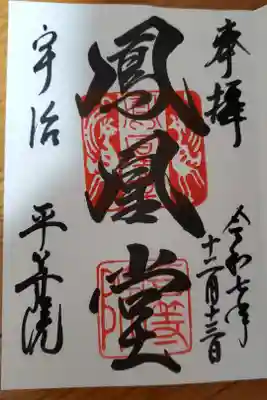 奉拝
令和七年
十二月十三日
鳳凰堂
宇治
平等院